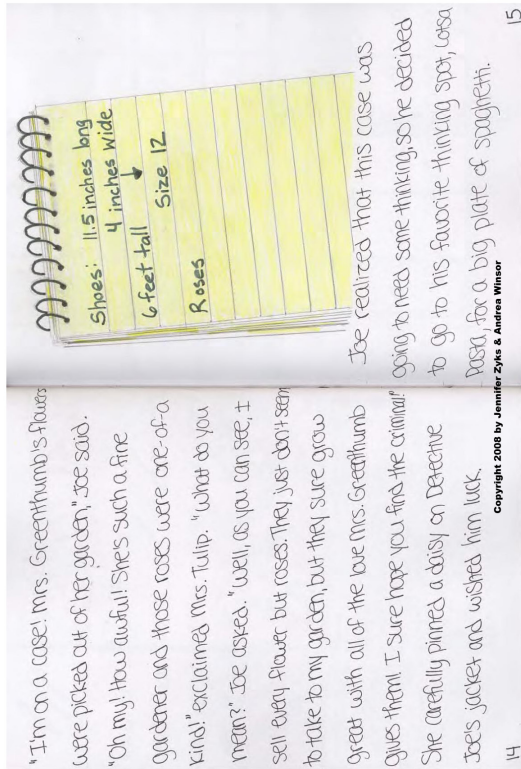 "I'm on a case! Mrs. Greenthumb's flowers
were picked out of her garden," Joe said.
"Oh my! How awful! She's such a fine
gardener and those roses were one-of-a
kind!" exclaimed Mrs. Tulip. "What do you
mean?" Joe asked. "Well, as you can see, I
sell every flower but roses. They just don't seem
to take to my garden, but they sure grow
great with all of the love Mrs. Greenthumb
gives them! I sure hope you find the criminal!"
She carefully pinned a daisy on Detective
Joe's jacket and wished him luck.
14
Shoes: 11.5 inches long
4 inches wide
6 feet tall
Size 12
Roses
Joe realized that this case was
going to need some thinking, so he decided
to go to his favorite thinking spot, Lotsa
Pasta, for a big plate of spaghetti.
15
Copyright 2008 by Jennifer Zyks & Andrea Winsor